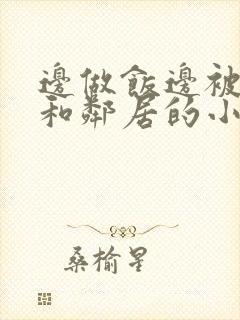 邊做飯邊被
和鄰居的小
桑榆星